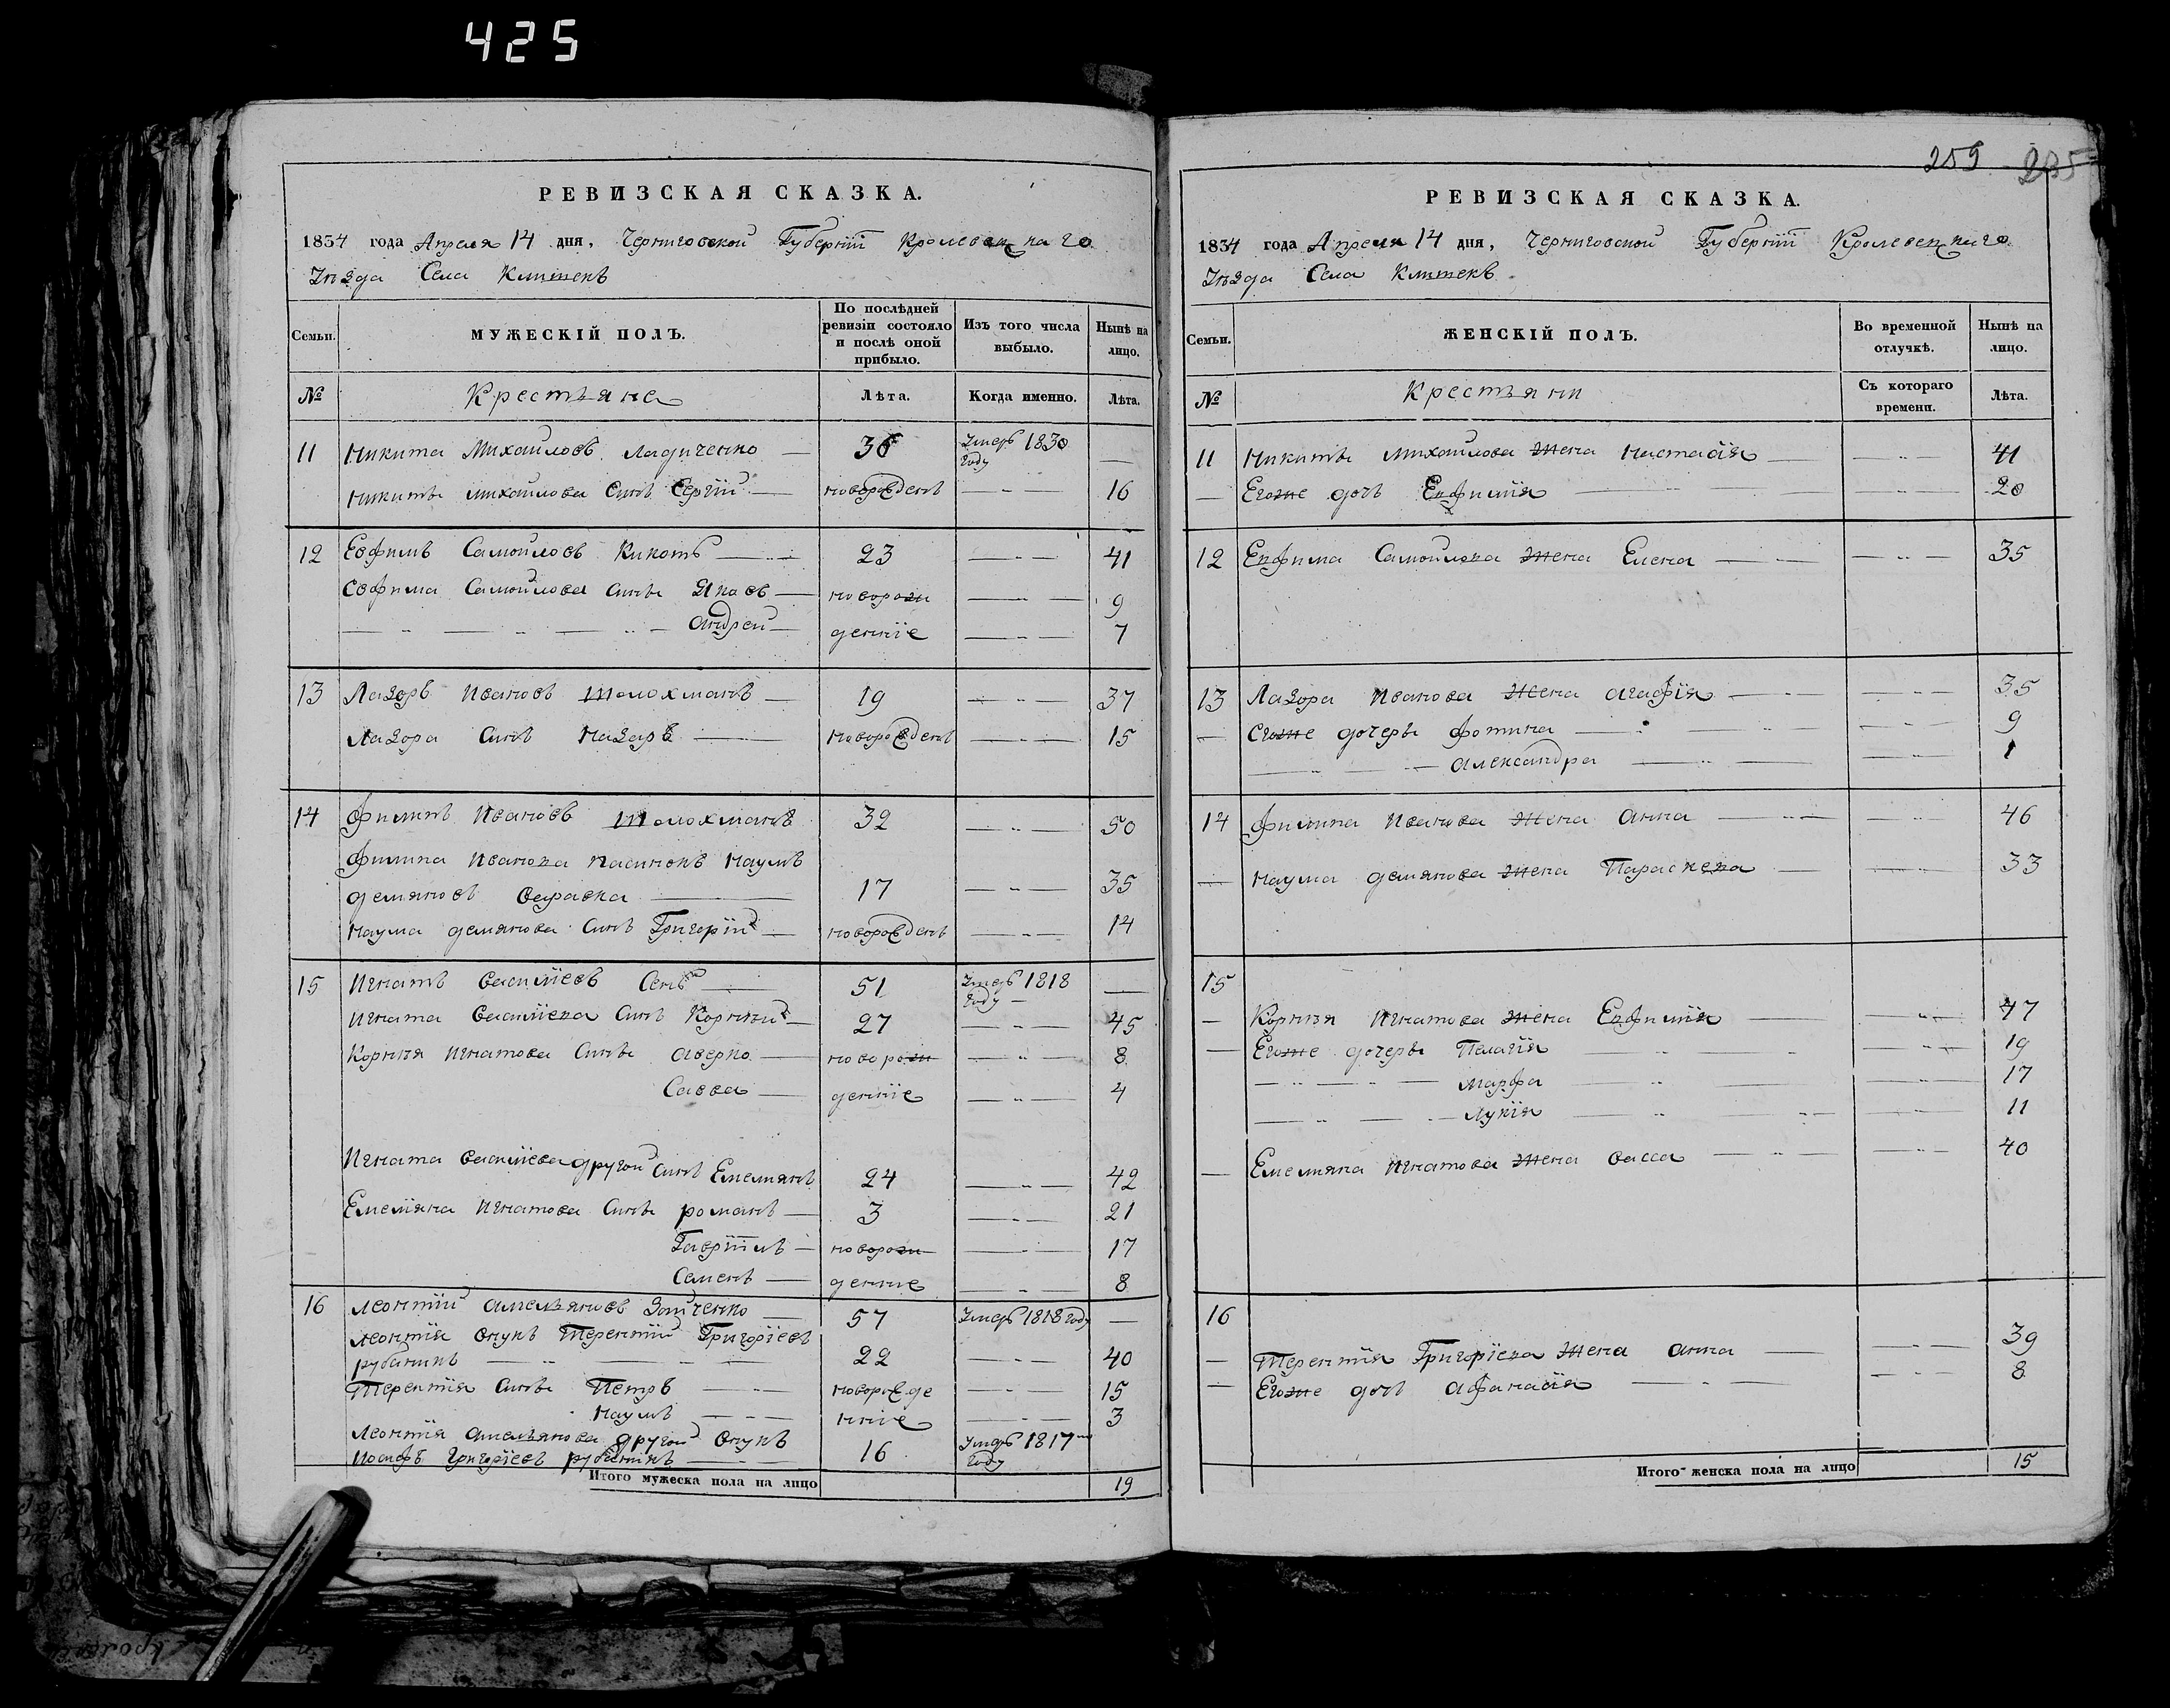 425
РЕВИЗСКАЯ СКАЗКА.
1834 года Апреля 14 дня, Черниговской Губерніи Кролевецкаго
Уѣзда Села Клишекъ
Семьи.
МУЖЕСКІЙ ПОЛЪ.
По послѣдней ревизіи состояло и послѣ оной прибыло.
Изъ того числа выбыло.
Нынѣ на лицо.
№ Крестьяне Лѣта. Когда именно. Лѣта.
11 Никита Михайловъ Ладиченко — 36 Умеръ 1830 году —
Никиты михайлова Синъ Сергій — новорожденъ — „ — 16
12 Евфимъ Самойловъ Кикоть — 23 — „ — 41
Евфима Самойлова Сины Яковъ — новорож — „ — 9
— „ — „ — „ — андрей — денніе — „ — 7
13 Лазоръ Ивановъ Толохманъ — 19 — „ — 37
Лазора Синъ Назаръ — новорожденъ — „ — 15
14 Филипъ Ивановъ Толохманъ 32 — „ — 50
Филипа Иванова пасинокъ Наумъ
демяновъ — 17 — „ — 35
Наума демянова Синъ Григорій — новорожденъ — „ — 14
15 Игнатъ Василіевъ — 51 Умеръ 1818 году —
Игната Василіева Синъ Корній — 27 — „ — 45
Корнія Игнатова Сины аверко — новорож — „ — 8
Савва — денніе — „ — 4
Игната Василіева другой Синъ Емелянъ 24 — „ — 42
Емеляна Игнатова Сины романъ — 3 — „ — 21
Гавріилъ — новорож — „ — 17
Семенъ — денніе — „ — 8
16 Леонтій амельяновъ Зайченко — 57 Умеръ 1818 году —
Леонтія внукъ Терентій Григоріевъ
рубаникъ — „ — 22 — „ — 40
Терентія Сины Петръ — новорожде — „ — 15
Наумъ — нніе — „ — 3
Леонтія амельянова другой внукъ
Иосифъ Григоріевъ рубаникъ — 16 Умеръ 1817 году
Итого мужеска пола на лицо 19
259 235
РЕВИЗСКАЯ СКАЗКА.
1834 года Апреля 14 дня, Черниговской Губерніи Кролевецкаго
Уѣзда Села Клишекъ
Семьи.
ЖЕНСКІЙ ПОЛЪ.
Во временной отлучкѣ.
Нынѣ на лицо.
№ Крестьяни Съ котораго времени. Лѣта.
11 Никиты михайлова жена Настасія — „ — 41
— Егоже дочь Евфимія — „ — 20
12 Евфима Самойлова жена Елена — „ — 35
13 Лазора Иванова жена агафія — „ — 35
— Егоже дочеры фотина — „ — 9
— „ — александра — „ — 1
14 Филипа Иванова жена анна — „ — 46
— Наума демянова жена Параскева — „ — 33
15
— Корнія Игнатова жена Евфимія — „ — 47
— Егоже дочеры Пелагія — „ — 19
— „ — „ — марфа — „ — 17
— „ — „ — Лукія — „ — 11
— Емеляна Игнатова жена васса — „ — 40
16
— Терентія Григоріева жена анна — „ — 39
— Егоже дочь афанасія — „ — 8
Итого женска пола на лицо 15